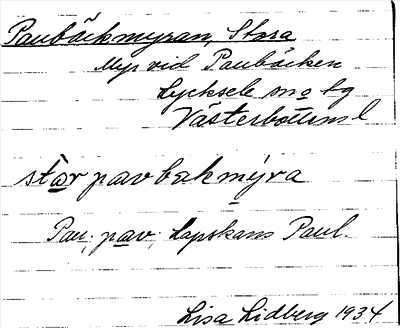 Paubäckmyran, Stora
Myr vid Paubäcken
Lycksele sn o tg
Västerbottens l
stòr pavbäkmýra
Pau, pav, lapskans Paul.
Lisa Lidberg 1934